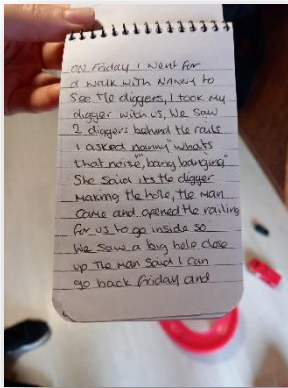 ON Friday I went for
a walk with NANNY to
See the diggers, I took my
digger with us, We saw
2 diggers behind the rails
I asked nanny whats
that noise, "bang banging"
She said its the digger
Making the hole, the Man
Came and opened the railing
for us to go inside so
We saw a big hole close
up The Man Said I can
go back Friday and